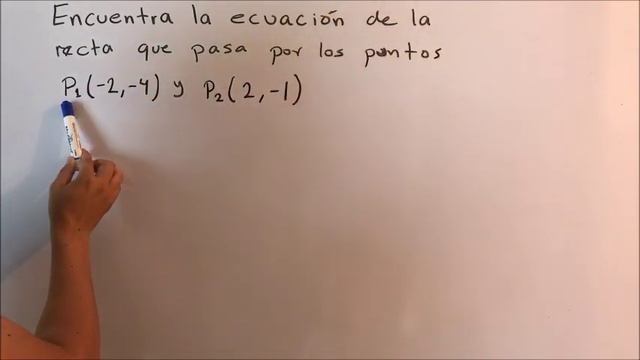 Encuentra la ecuación de la
recta que pasa por los puntos
P₁(-2,-4) y P₂(2,-1)